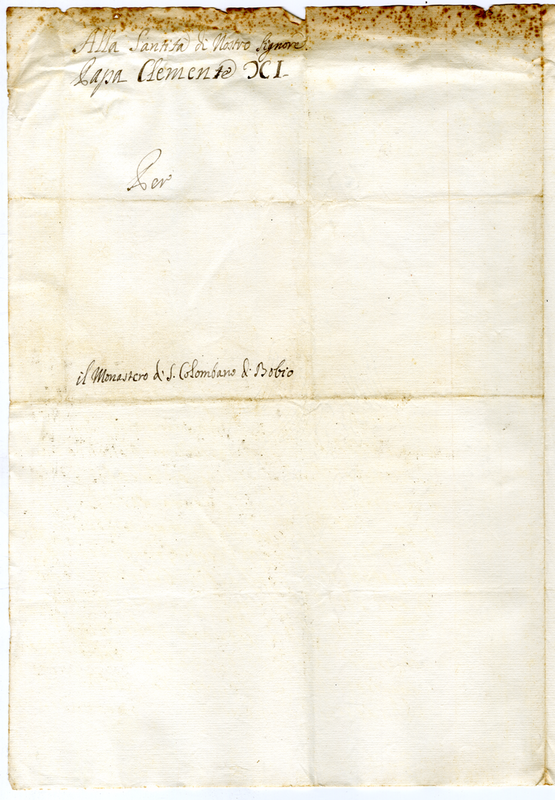 Alla Santità di Nostro Signore
Papa Clemente XI
Per
il Monastero di S. Colombano di Bobio